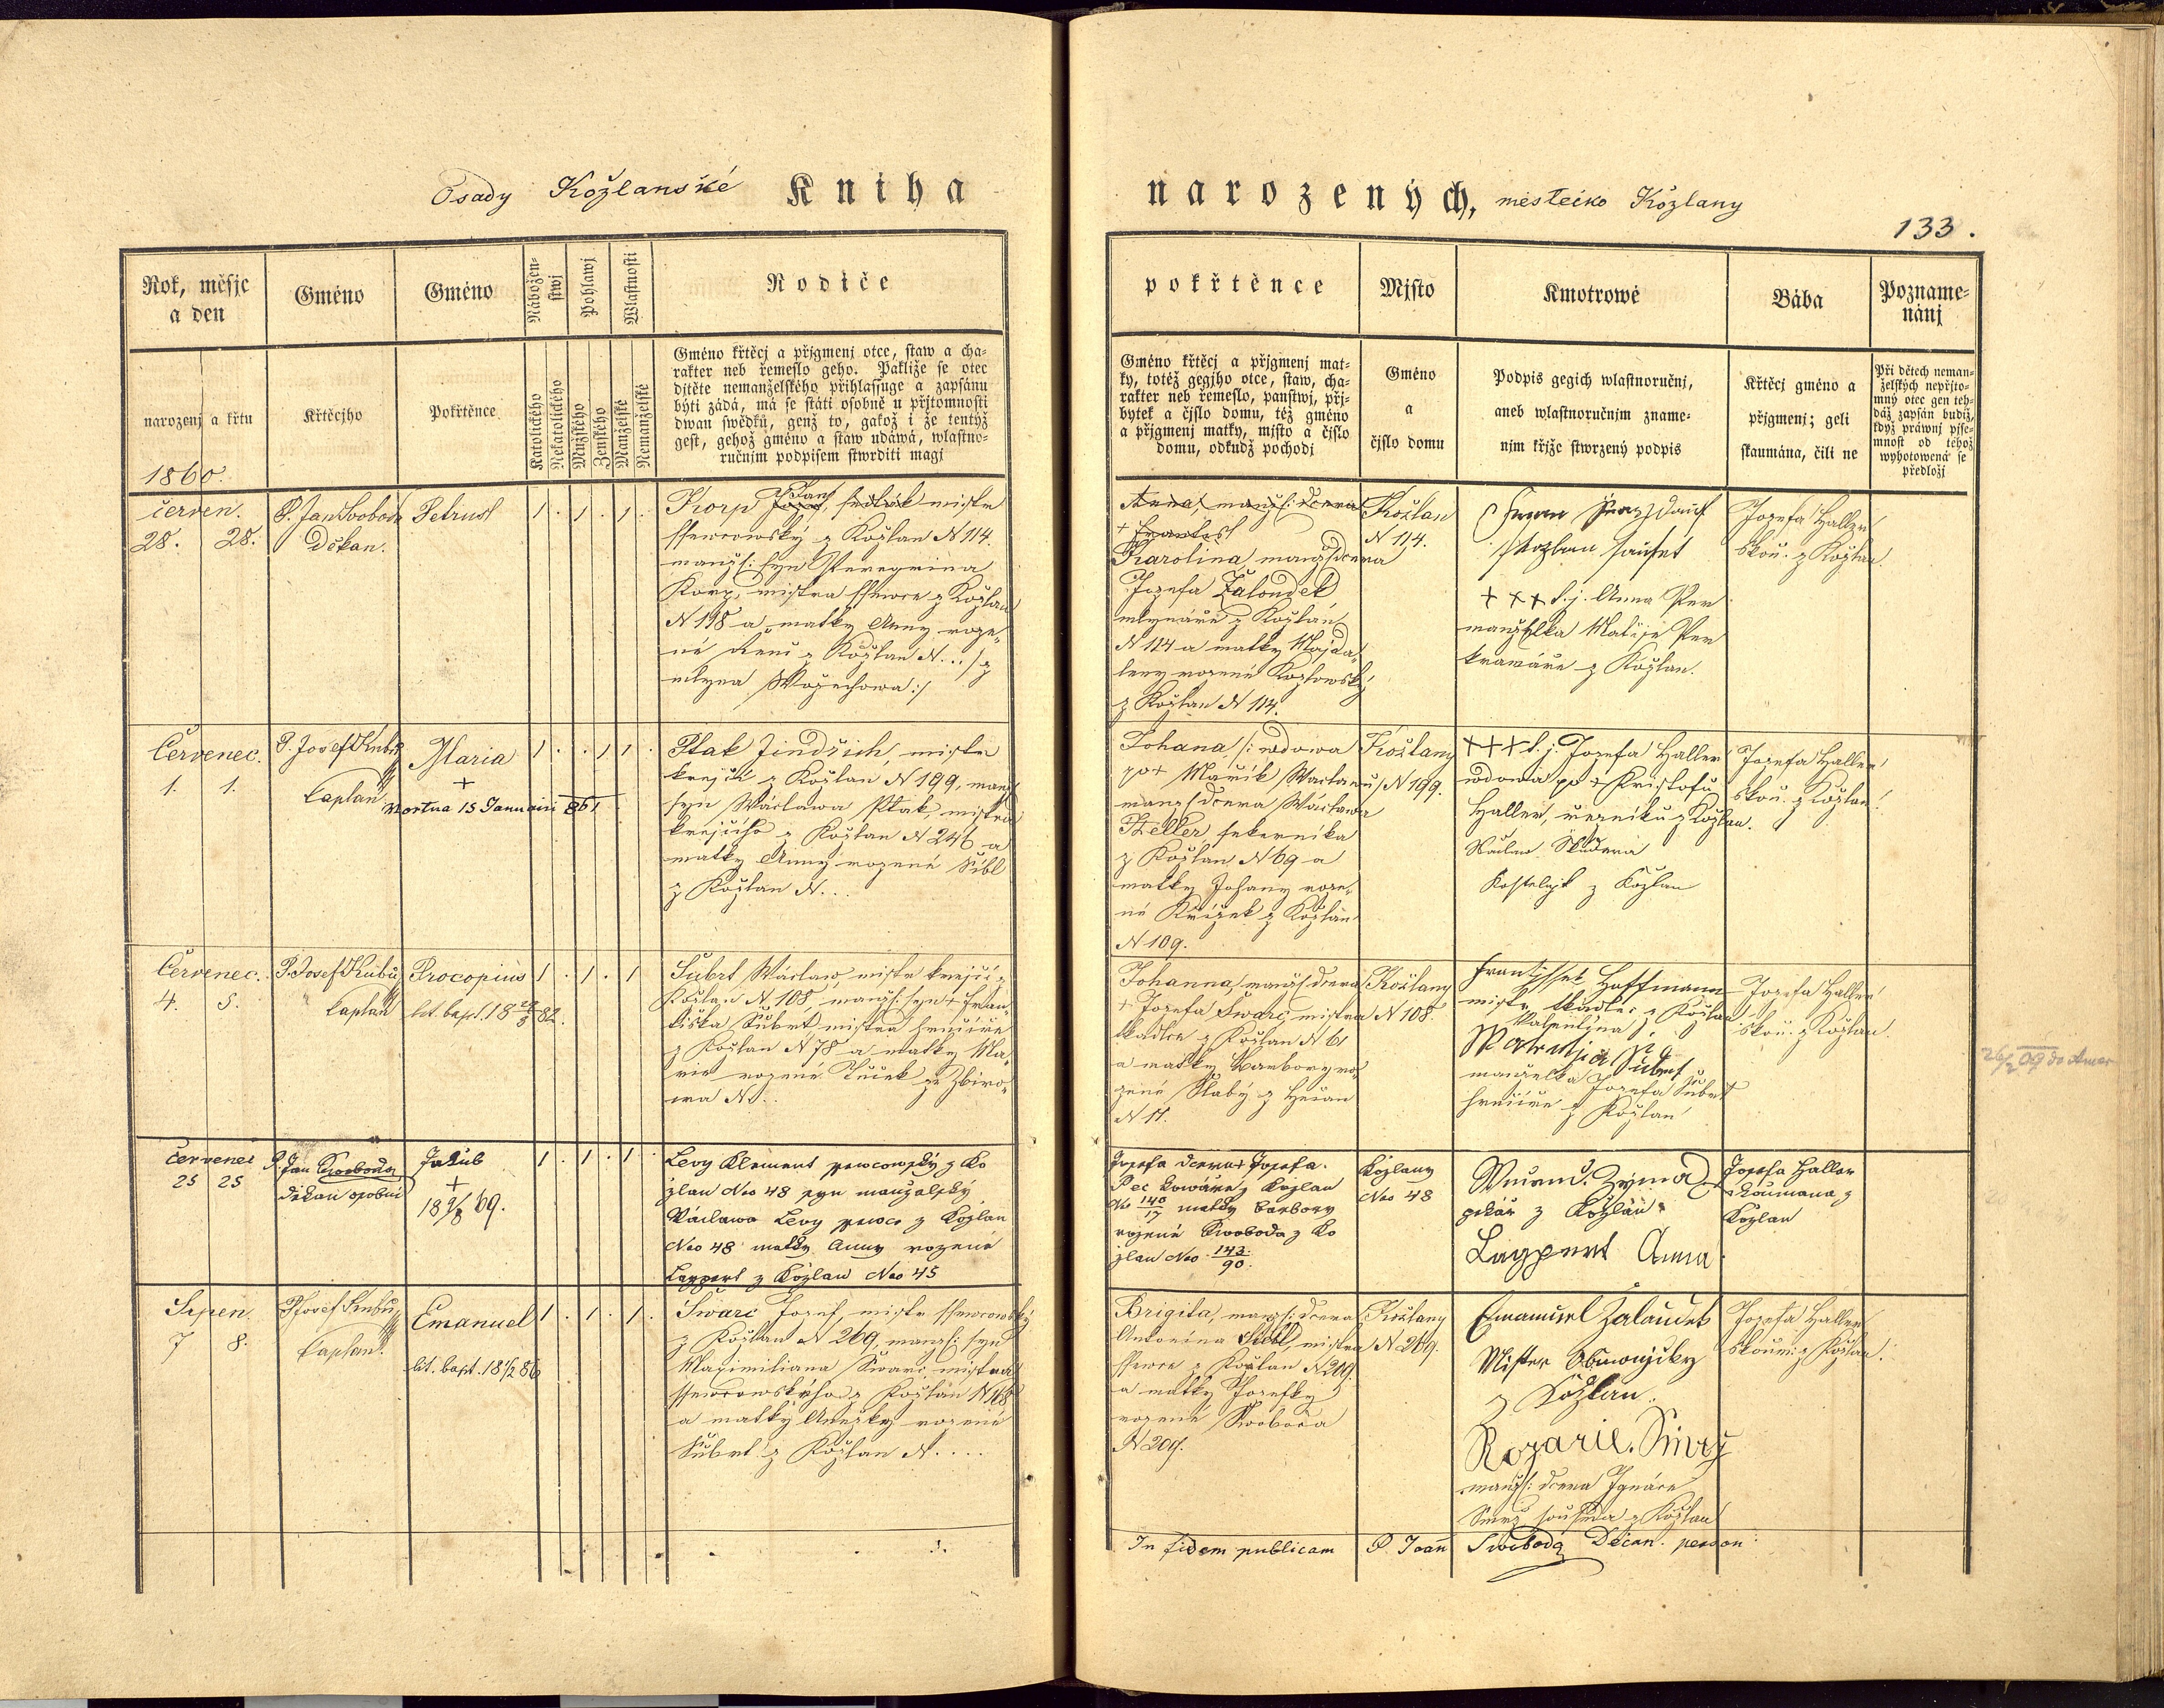 Osady Kožlanské Kniha
narozených, městečko Kožlany
133.
Rok, měsjc a den
Gméno
Gméno
Nábožen-stwj
Pohlawj
Wlastnosti
Rodiče
narozenj a křtu
Křtěcjho
Pokřtěnce
Katolického
Nekatolického
Mužského
Ženského
Manželské
Nemanželské
Gméno křtěcj a přjgmenj otce, staw a cha-
rakter neb řemeslo geho. Pakliže se otec
djtěte nemanželského přihlassuge a zapsánu
býti žádá, má se státi osobně u přjtomnosti
dwau swědků, genž to, gakož i že tentýž
gest, gehož gméno a staw udáwá, wlastno-
ručnjm podpisem stwrditi magj
1860.
červen.
28. 28.
P. Jan Svoboda
Děkan.
Petrus
1 . 1 . 1 .
Korp Jan mistr
ssewcowský z Kožlan N 114.
manžs: syn Peregrina
Korp, mistra ssewce z Kožlan
N 198 a matky Anny roze-
né z Kožlan N...
mlýna
Červenec.
1. 1.
P. Josef Kubů
Caplan
Maria
+
Mortua 15 Januarii 861
1 . . 1 1 .
Ptak Jindřich, mistr
krejčí z Kožlan N 199, manž
syn Wáclawa Ptak, mistra
krejčího z Kožlan N 246 a
matky Anny rozené Sibl
z Kožlan N...
Červenec.
4. 5.
P. Josef Kubů
Caplan
Procopius
lit. bapt.
1 . 1 . 1
Šubrt Wáclaw mistr krejčí z
Kožlan N. 108, manžs: syn + Fran-
tiška Šubrt mistra hrnčíře
z Kožlan N 78 a matky Ma-
rie rozené Tuček ze Zbiro-
wa N...
červenec
25 25
P. Jan Swoboda
děkan osobní
Jakub
+
18 9/8 69.
1 . 1 . 1
Levy Klement sewcowský z Ko
žlan Nro 48 syn manželský
Václawa Levy sewce z Kožlan
Nro 48 matky Anny rozené
Lappert z Kožlan Nro 45
Srpen.
7 8.
P. Josef Kubů
Caplan.
Emanuel
lit. bapt. 18 1/2 86
1 . 1 . 1 .
Švarc Josef, mistr ssewcowský
z Kožlan N 269, manžs: syn
Maximiliana Švarc, mistra
ssewcowského z Kožlan N 168
a matky Anežky rozené
Šubrt z Kožlan N....
pokřtěnce
Mjsto
Kmotrowé
Bába
Pozname-nánj
Gméno křtěcj a přjgmenj mat-
ky, totéž gegjho otce, staw, cha-
rakter neb řemeslo, panstwj, přj-
bytek a čjslo domu, též gméno
a přjgmenj matky, mjsto a čjslo
domu, odkudž pochodj
Gméno
a
čjslo domu
Podpis gegich wlastnoručnj,
aneb wlastnoručnjm zname-
njm křjže stwrzený podpis
Křtěcj gméno a
přjgmenj; geli
skaumána, čili ne
Při dětech neman-
želských nepřjto-
mný otec gen teh-
dáž zapsán budiž,
když práwnj pjse-
mnost od téhož
wyhotowená se
předložj
Anna, manžs: dcera
+ Frantis
Karolina, manžs dcera
Jozefa Žaloudek
mlynáře z Kožlan
N 114 a matky Majda-
leny rozené Kozlowský
z Kožlan N 114.
Kožlan
N 114.
+++ t. j. Anna Per
manželka Matěje Per
kraváře z Kožlan.
Jozefa Haller
skou. z Kožlan.
Johana /: wdowa
po + Mařík Waclawu/
manžs dcera Wáclawa
Zeller pekarníka
z Kožlan N 69 a
matky Johany roze-
né Křížek z Kožlan
N 109.
Kožlany
N 199.
+++ t. j. Jozefa Haller
wdowa po + Kristofu
Haller, řezníku z Kožlan.
Kostelník z Kožlan
Jozefa Haller
skou. z Kožlan.
Johanna, manžs dcera
+ Jozefa Švarc, mistra
tkadlce z Kožlan N 61
a matky Barbory ro-
zené Slabý z Hečan
N 17.
Kožlany
N 108.
Frantjssek Hoffmann
mistr tkadlec z Kožlan
manželka Jozefa Šubrt
hrnčíře z Kožlan
Jozefa Haller
skou. z Kožlan.
26/2 09 do Amer
Jozefa dcera + Jozefa
Pec kowáře z Kožlan
No 140/17 matky Barbory
rozené Swoboda z Ko
žlan Nro 143/90.
Kožlany
Nro 48
Zyma
pekař z Kožlan
Lappert Anna
Jozefa Haller
skoumana z
Kožlan
Brigita, manžs: dcera
Antonína Siebl, mistra
ssewce z Kožlan N 209.
a matky Jozefky
rozené Swoboda
N 209.
Kožlany
N 269.
Emanuel Zalaudek
Mister
z Kožlan.
Rozarie. Smrz
manžs: dcera Ignáce
Smrz, souseda z Kožlan
Jozefa Haller
skoum. z Kožlan.
In fidem publicam P. Joann Swoboda Decan. person